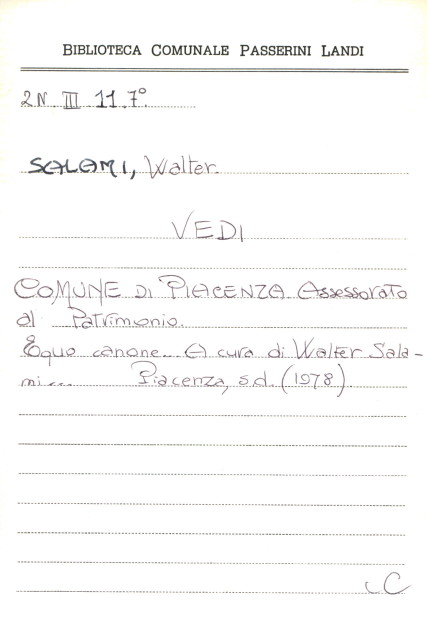 BIBLIOTECA COMUNALE PASSERINI LANDI
2N III 11.7°
SALAMI, Walter.
VEDI
COMUNE DI PIACENZA. Assessorato
al Patrimonio.
Equo canone... A cura di Walter Sala-
mi... Piacenza, s.d. (1978).
C